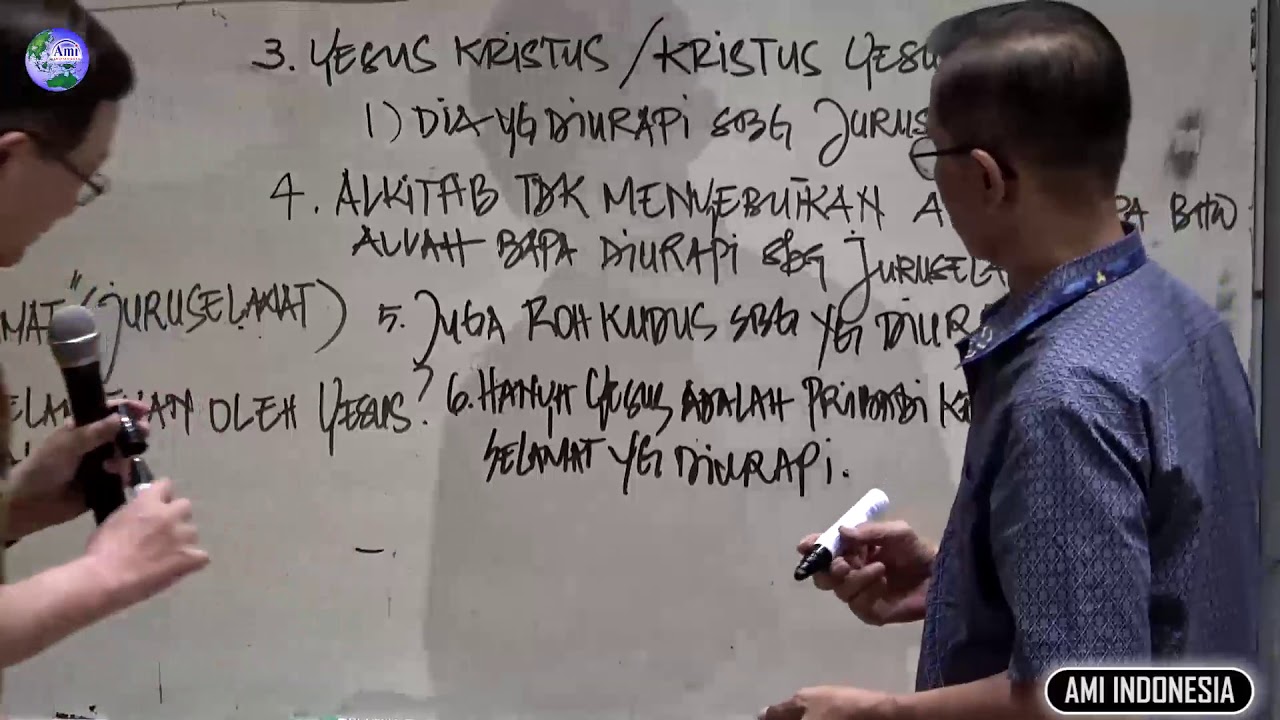 Ami
3. YESUS KRISTUS / KRISTUS YESU
1) DIA YG DIURAPI SBG JURUS
4. ALKITAB TDK MENYEBUTKAN A PA BHW
ALLAH BAPA DIURAPI SBG JURUSELA
MAT" (JURUSELAMAT)
5. JUGA ROH KUDUS SBG YG DIURA
ELAM AN OLEH YESUS?
6. HANYA YESUS ADALAH PRIBADI KE
SELAMAT YG DIURAPI.
AMI INDONESIA